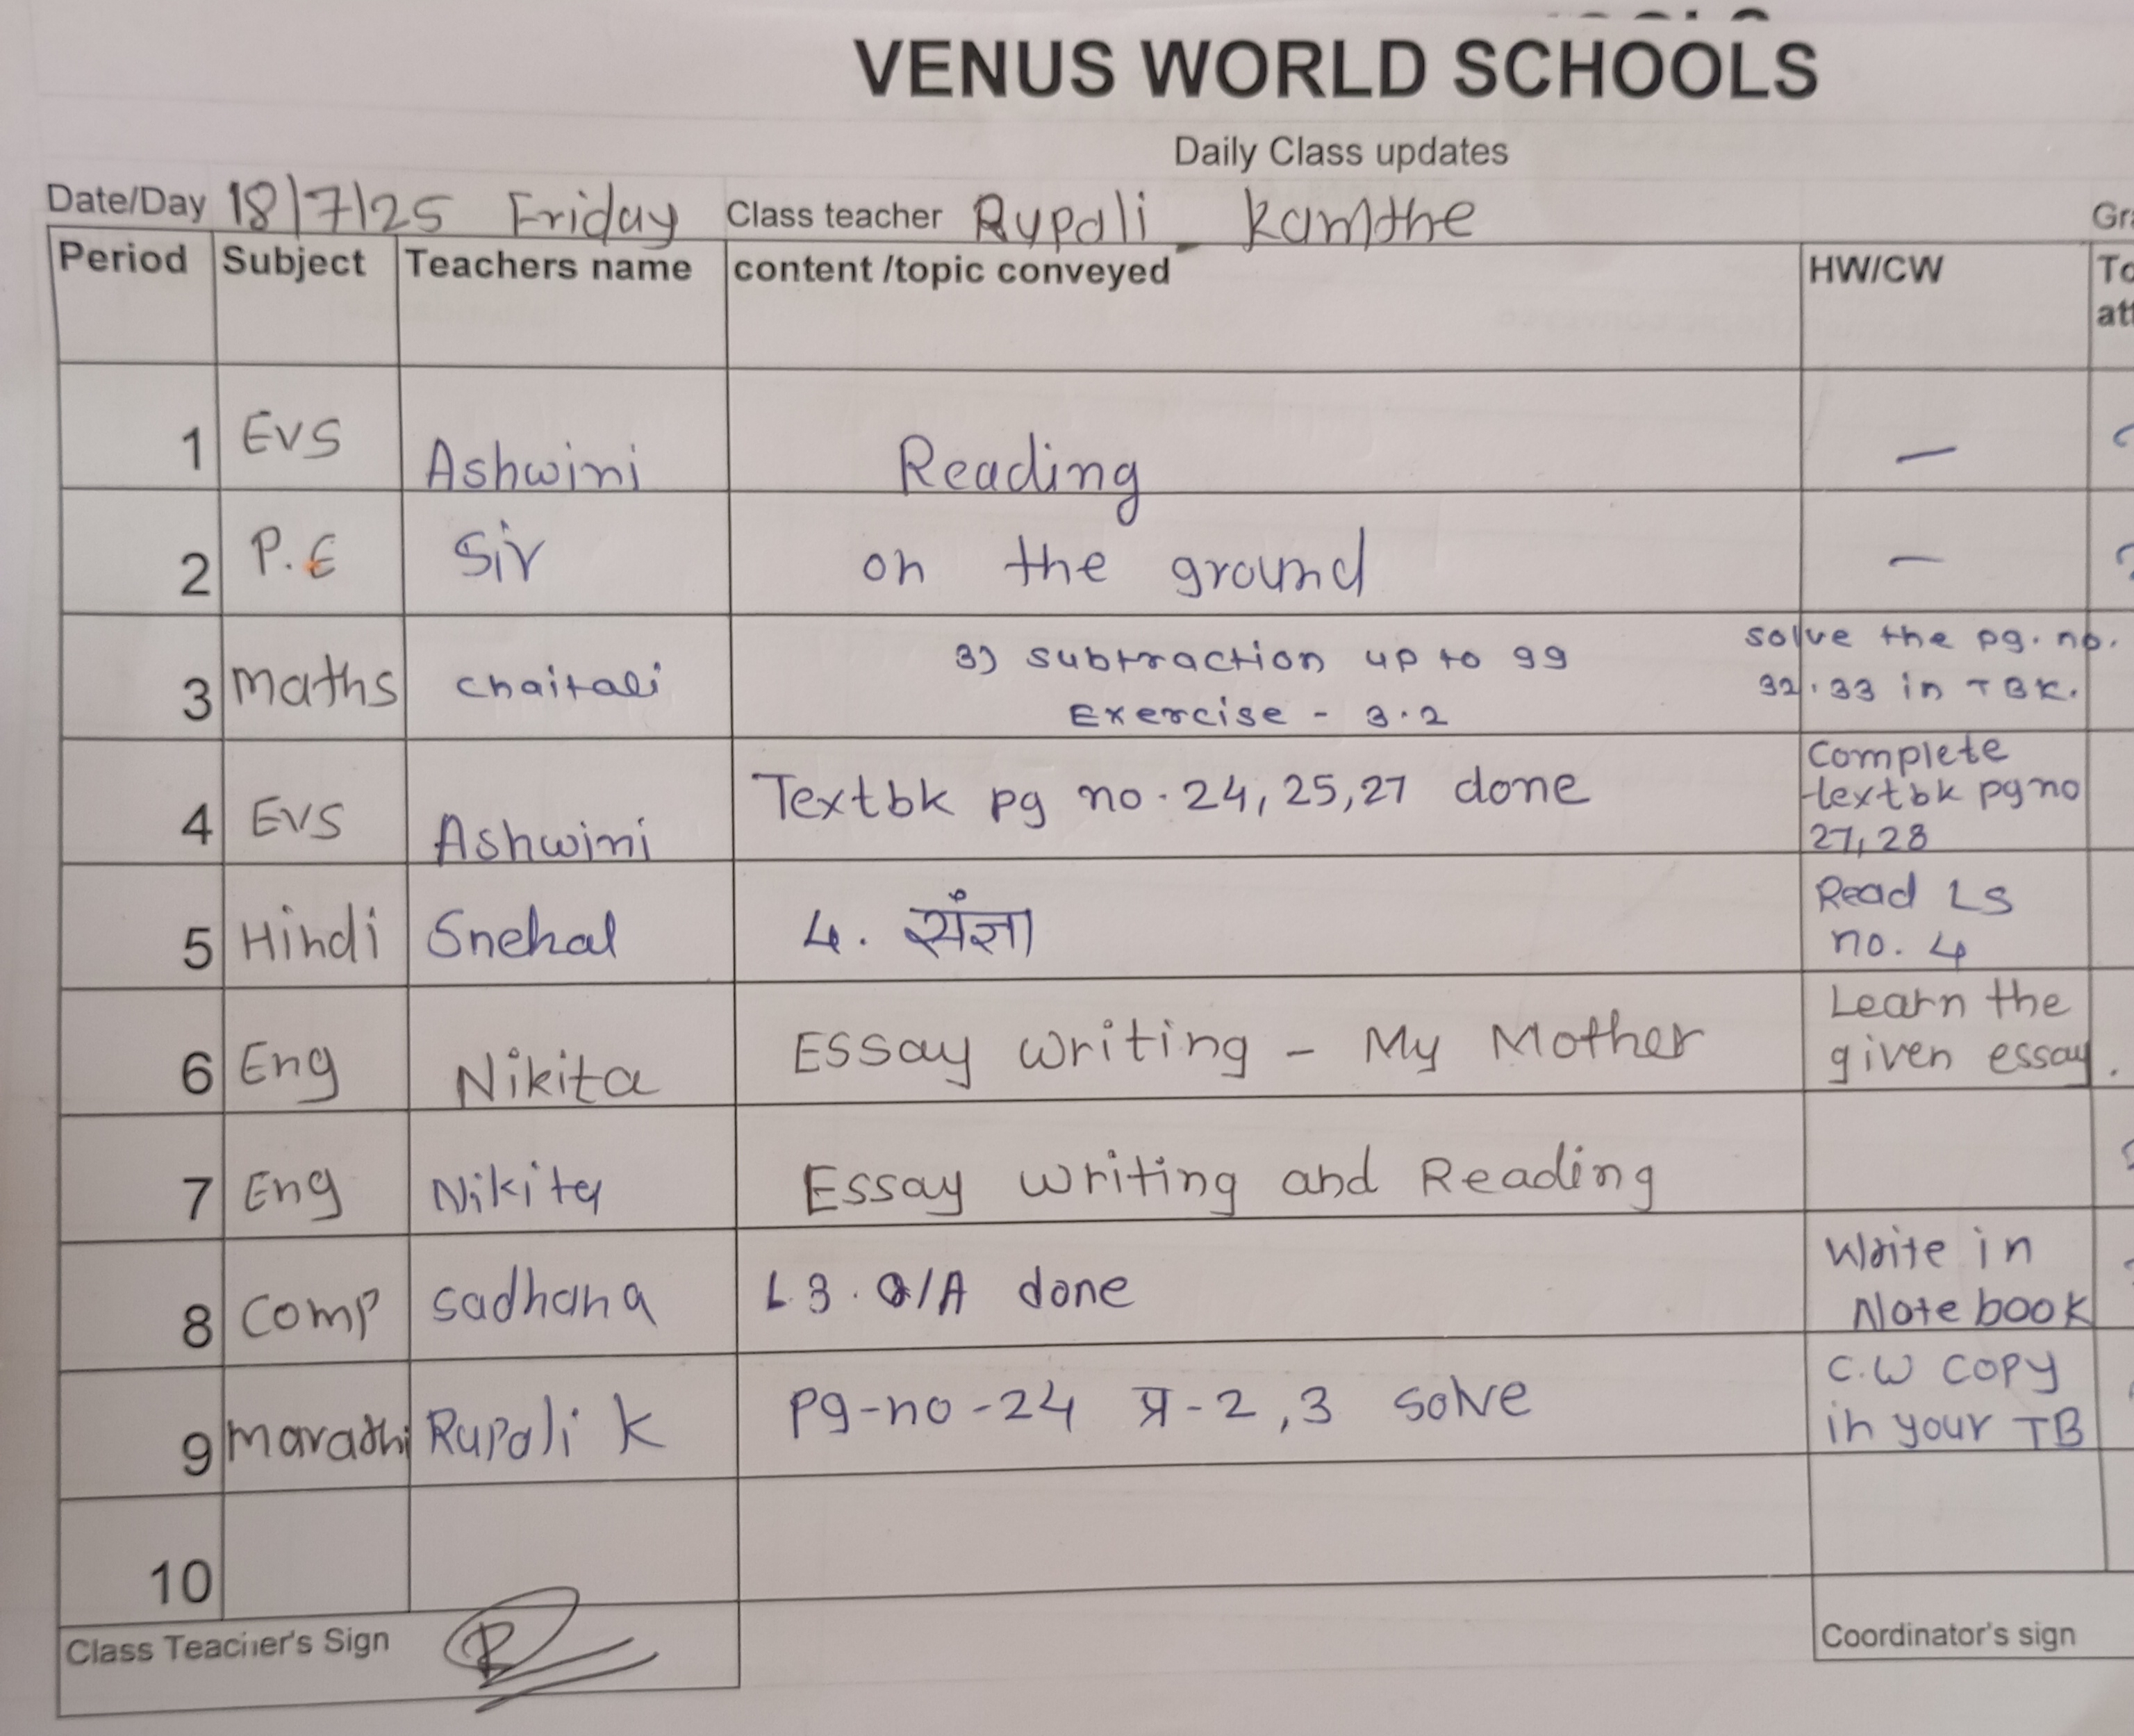 VENUS WORLD SCHOOLS
Daily Class updates
Date/Day 18/7/25 Friday Class teacher Rupali Kamthe
Period Subject Teachers name content /topic conveyed HW/CW
1 EVS Ashwini Reading —
2 P.E Sir on the ground —
3 Maths Chaitali 3) Subtraction up to 99 Exercise - 3.2 solve the pg. no. 32.33 in TBK.
4 EVS Ashwini Textbk pg no. 24, 25, 27 done Complete textbk pg no 27, 28
5 Hindi Snehal 4. संज्ञा Read LS no. 4
6 Eng Nikita Essay writing - My Mother Learn the given essay.
7 Eng Nikita Essay writing and Reading
8 Comp sadhana L 3. Q/A done Write in Note book
9 Marathi Rupali K Pg-no-24 प्र-2, 3 solve C.W copy in your TB
10
Class Teacher's Sign Coordinator's sign